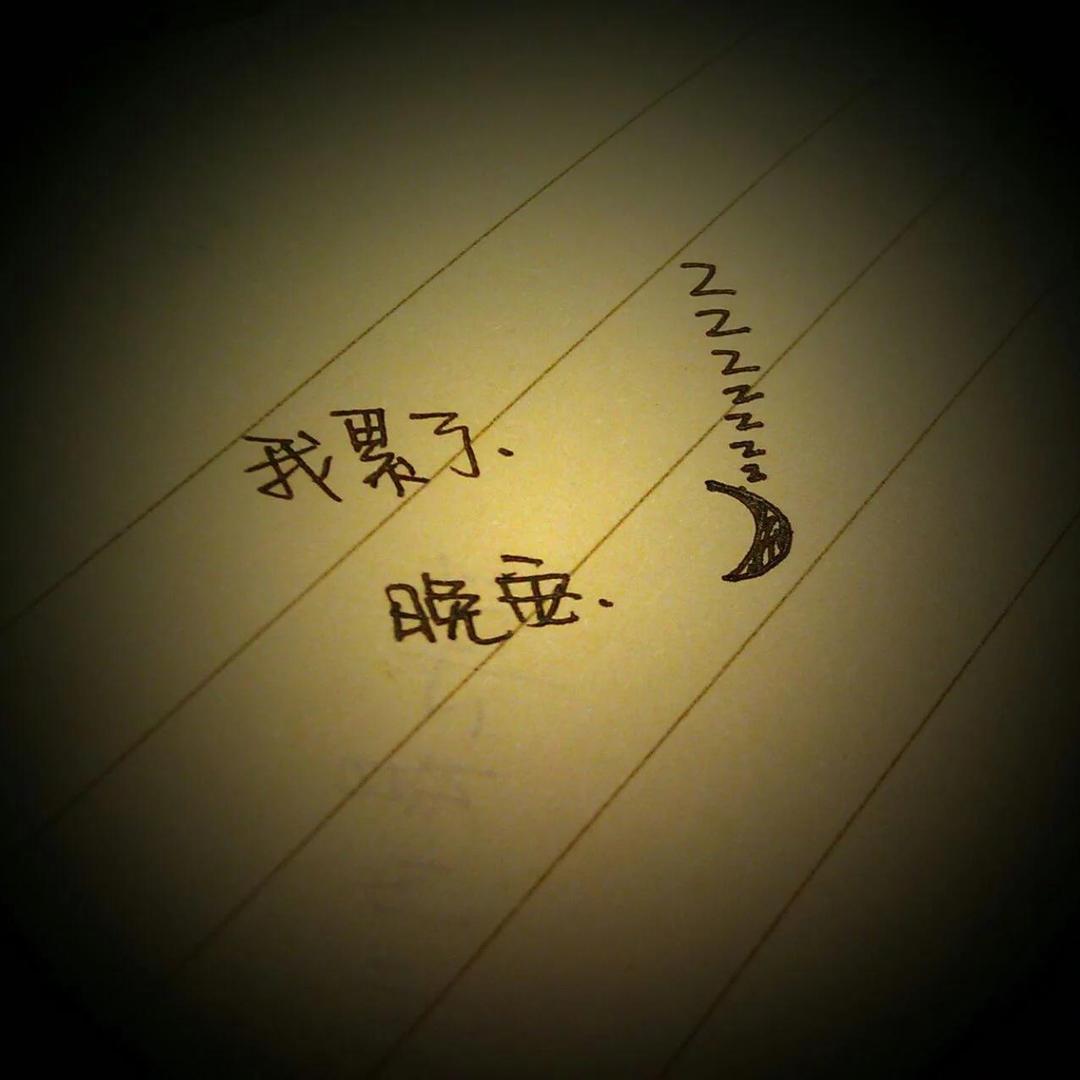 我累了.
晚安.
zzzzzzzz